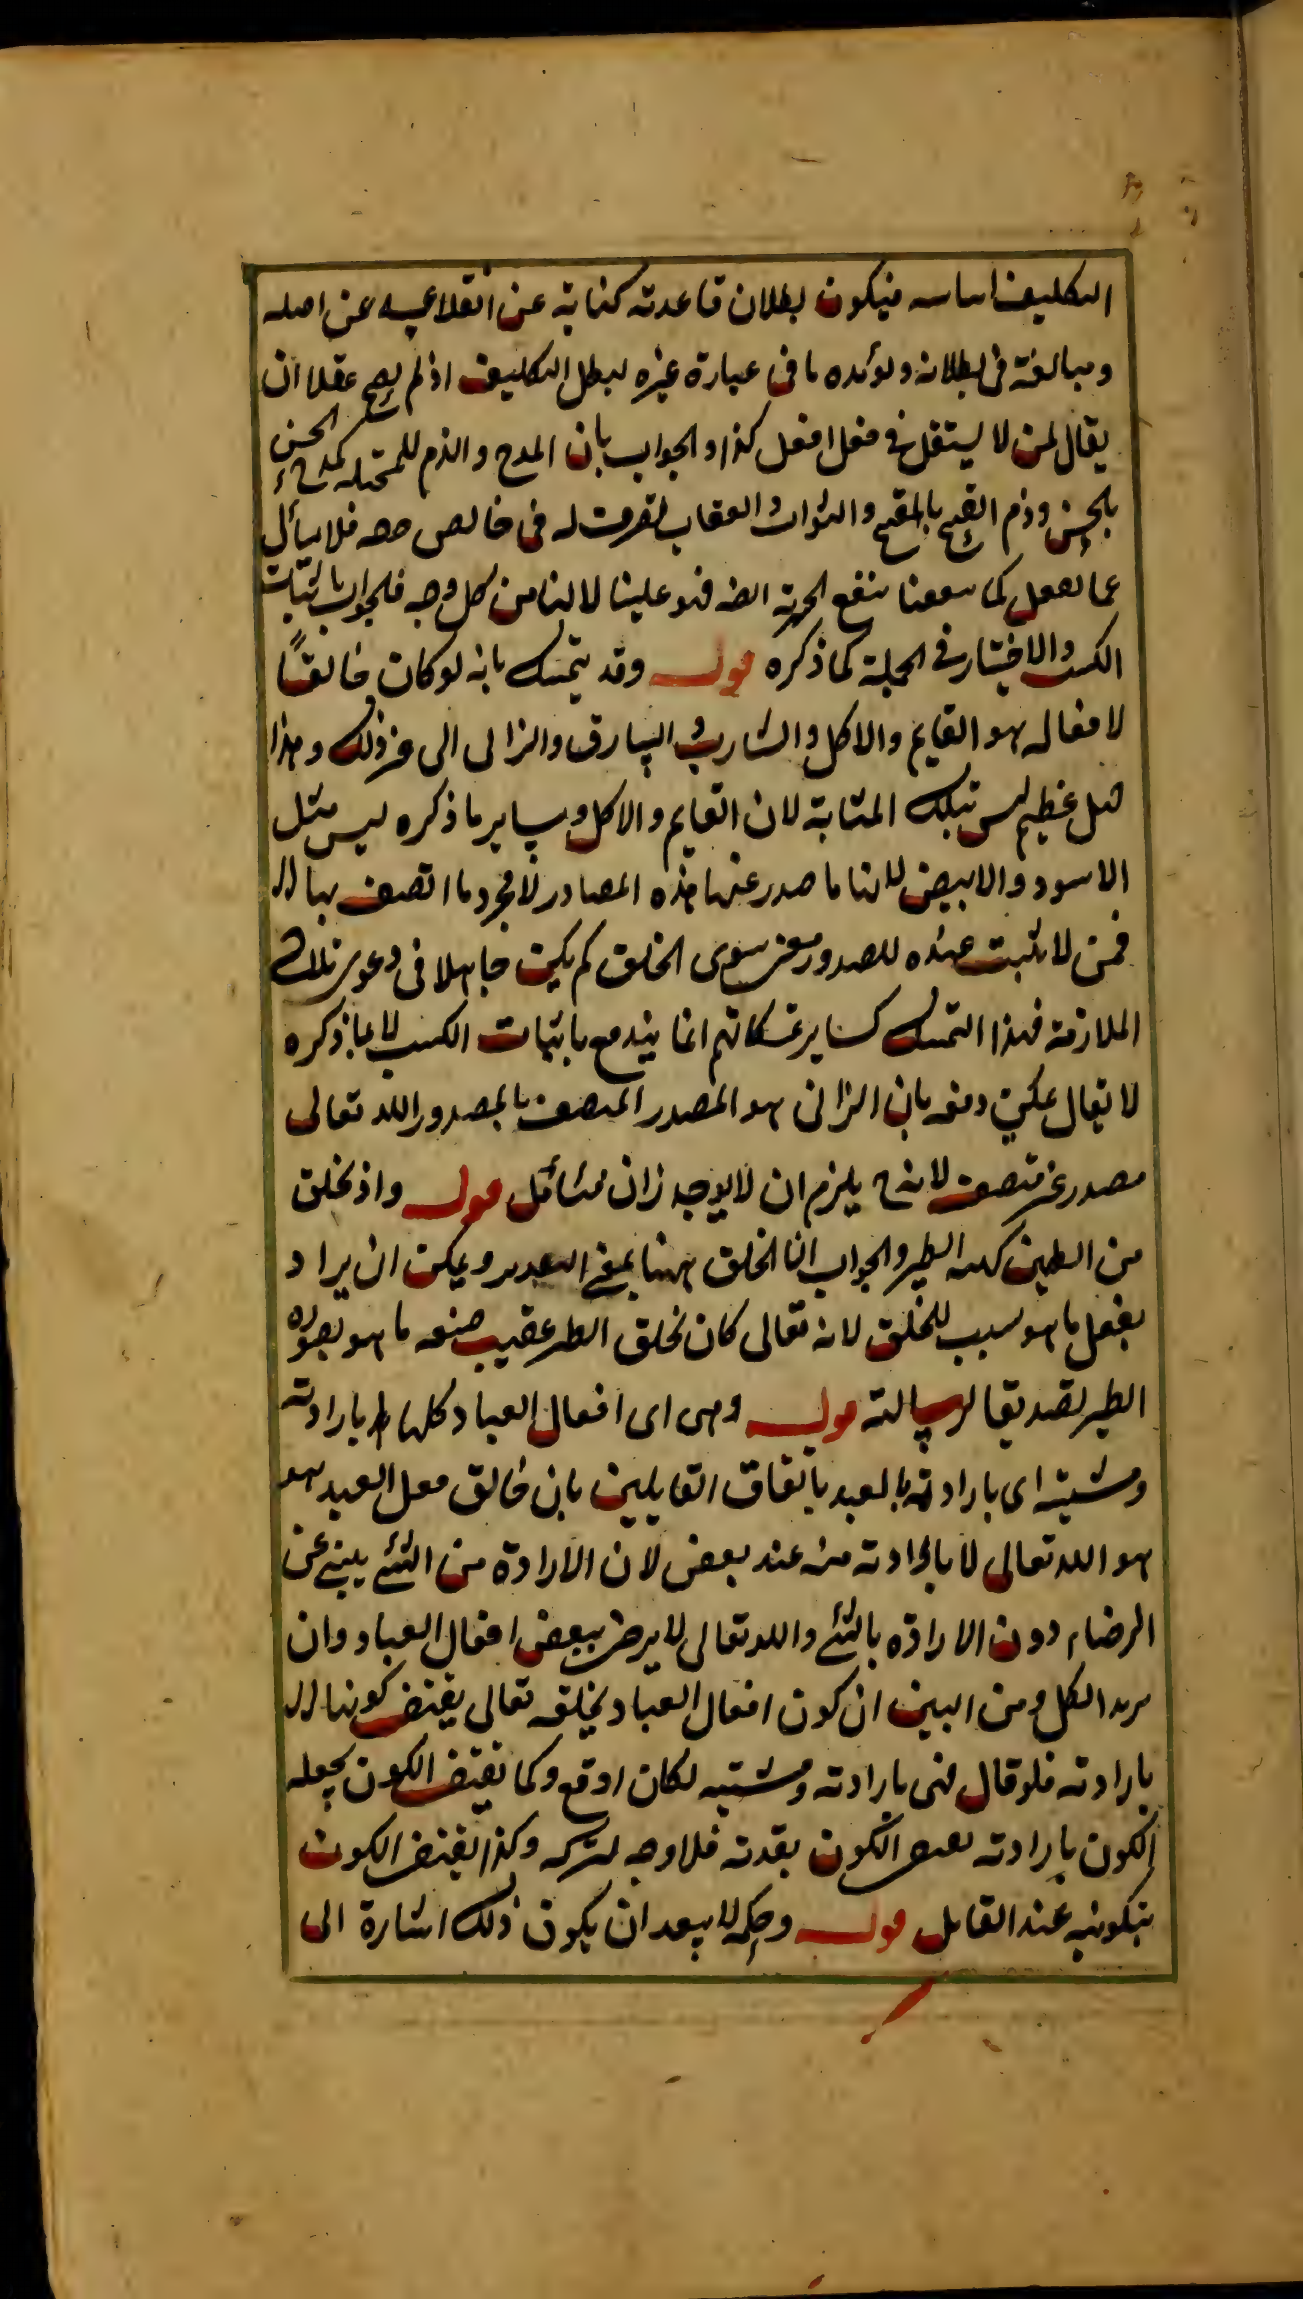 التكليف اساسه فيكون بطلان قاعدته كناية عن انقلاعه عن اصله
ومبالغة فى بطلانه ويؤيده ما فى عبارة غيره لبطل التكليف اذ لم يصح عقلا ان
يقال لمن لا يستقل فى فعل افعل كذا والجواب بان المدح والذم للمحلية كمدح الحسن
بالحسن وذم القبيح بالقبح والثواب والعقاب تصرف له فى خالص حقه فلا يسأل
عما يفعل كما ينفعنا ينفع الجبرية ايضا فهو علينا لا لنا من كل وجه فالجواب باثبات
الكسب والاختيار فى الجملة كما ذكره قوله وقد يتمسك بانه لو كان خالقًا
لافعاله هو القايم والاكل والشارب والسارق والزانى الى غير ذلك وهذا
جهل عظيم ليس بتلك المثابة لان القايم والاكل وساير ما ذكره ليس مثل
الاسود والابيض لانها ما صدر عنها هذه المصادر لا مجرد ما اتصف بها
فمن لا يثبت عنده للصدور معنى سوى الخلق لم يكن جاهلا فى دعوى تلك
الملازمة فهذا التمسك كساير تمسكاتهم انما يندفع باثبات الكسب لا بما ذكره
لا يقال يمكن دفعه بان الزانى هو المصدر المتصف بالمصدور والله تعالى
مصدر غير متصف لانه ح يلزم ان لا يوجد زان فتأمل قوله واذ تخلق
من الطين كهيئة الطير والجواب ان الخلق ههنا بمعنى التقدير ويمكن ان يراد
بفعل ما هو سبب للخلق لانه تعالى كان يخلق الطير عقيب صنعه ما هو بصورة
الطير تصديقا لرسالته قوله وهى اى افعال العباد كلها بارادته
ومشيته اى بارادته بالعبد باتفاق القايلين بان خالق فعل العبد هو
هو الله تعالى لا بارادته منه عند بعض لان الارادة من الشئ ينبئ عن
الرضاء دون الارادة بالشئ والله تعالى لا يرضى ببعض افعال العباد وان
يريد الكل ومن البين ان كون افعال العباد بخلقه تعالى يقتضى كونها
بارادته فلو قال فهى بارادته ومشيته لكان اوقع وكما يقتضى الكون بجعله
الكون بارادته يقتضى الكون بقدرته فلا وجه لتركه وكذا يقتضى الكون
بتكوينه عند القايل قوله وحكمه لا يبعد ان يكون ذلك اشارة الى